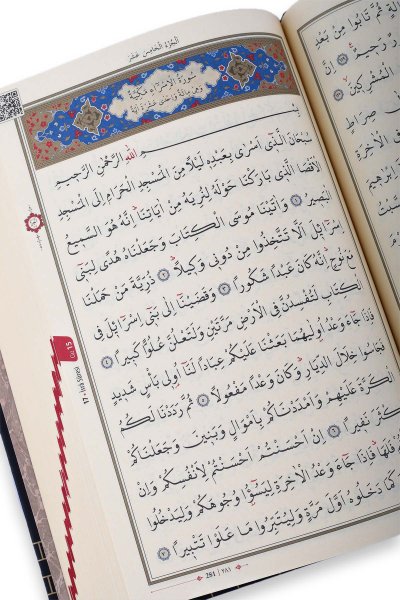 اَلْجُزْءُ الْخَامِسَ عَشَرَ
سُورَةُ الْاِسْرَاءِ مَكِّيَّةٌ
وَهِيَ مِائَةٌ وَاِحْدٰى عَشْرَةَ اٰيَةً
بِسْمِ اللّٰهِ الرَّحْمٰنِ الرَّحٖيمِ
سُبْحَانَ الَّذٖٓي اَسْرٰى بِعَبْدِهٖ لَيْلًا مِنَ الْمَسْجِدِ الْحَرَامِ اِلَى الْمَسْجِدِ
الْاَقْصَا الَّذٖي بَارَكْنَا حَوْلَهُ لِنُرِيَهُ مِنْ اٰيَاتِنَا اِنَّهُ هُوَ السَّمٖيعُ
الْبَصٖيرُ ١ وَاٰتَيْنَا مُوسَى الْكِتَابَ وَجَعَلْنَاهُ هُدًى لِبَنٖٓي
اِسْرَٓائٖلَ اَلَّا تَتَّخِذُوا مِنْ دُونٖي وَكٖيلًا ٢ ذُرِّيَّةَ مَنْ حَمَلْنَا
مَعَ نُوحٍ اِنَّهُ كَانَ عَبْدًا شَكُورًا ٣ وَقَضَيْنَٓا اِلٰى بَنٖٓي اِسْرَٓائٖلَ فِي
الْكِتَابِ لَتُفْسِدُنَّ فِي الْاَرْضِ مَرَّتَيْنِ وَلَتَعْلُنَّ عُلُوًّا كَبٖيرًا ٤
فَاِذَا جَٓاءَ وَعْدُ اُو۫لٰيهُمَا بَعَثْنَا عَلَيْكُمْ عِبَادًا لَنَٓا اُو۬لٖي بَأْسٍ شَدٖيدٍ
فَجَاسُوا خِلَالَ الدِّيَارِ وَكَانَ وَعْدًا مَفْعُولًا ٥ ثُمَّ رَدَدْنَا لَكُمُ
الْكَرَّةَ عَلَيْهِمْ وَاَمْدَدْنَاكُمْ بِاَمْوَالٍ وَبَنٖينَ وَجَعَلْنَاكُمْ
اَكْثَرَ نَفٖيرًا ٦ اِنْ اَحْسَنْتُمْ اَحْسَنْتُمْ لِاَنْفُسِكُمْ وَاِنْ
فَلَهَا فَاِذَا جَٓاءَ وَعْدُ الْاٰخِرَةِ لِيَسُٓوؤُ۫ا وُجُوهَكُمْ وَلِيَدْخُلُوا
كَمَا دَخَلُوهُ اَوَّلَ مَرَّةٍ وَلِيُتَبِّرُوا مَا عَلَوْا تَتْبٖيرًا ٧
281 | ٢٨١
Cüz 15
17- İsrâ Sûresi
ثُمَّ تَابُوا مِنْ بَعْدِ
رَحٖيمٌ
اِنَّ
الْمُشْرِكٖينَ
صِرَاطٍ
فِي الْاٰخِرَةِ
اِبْرٰهٖيمَ